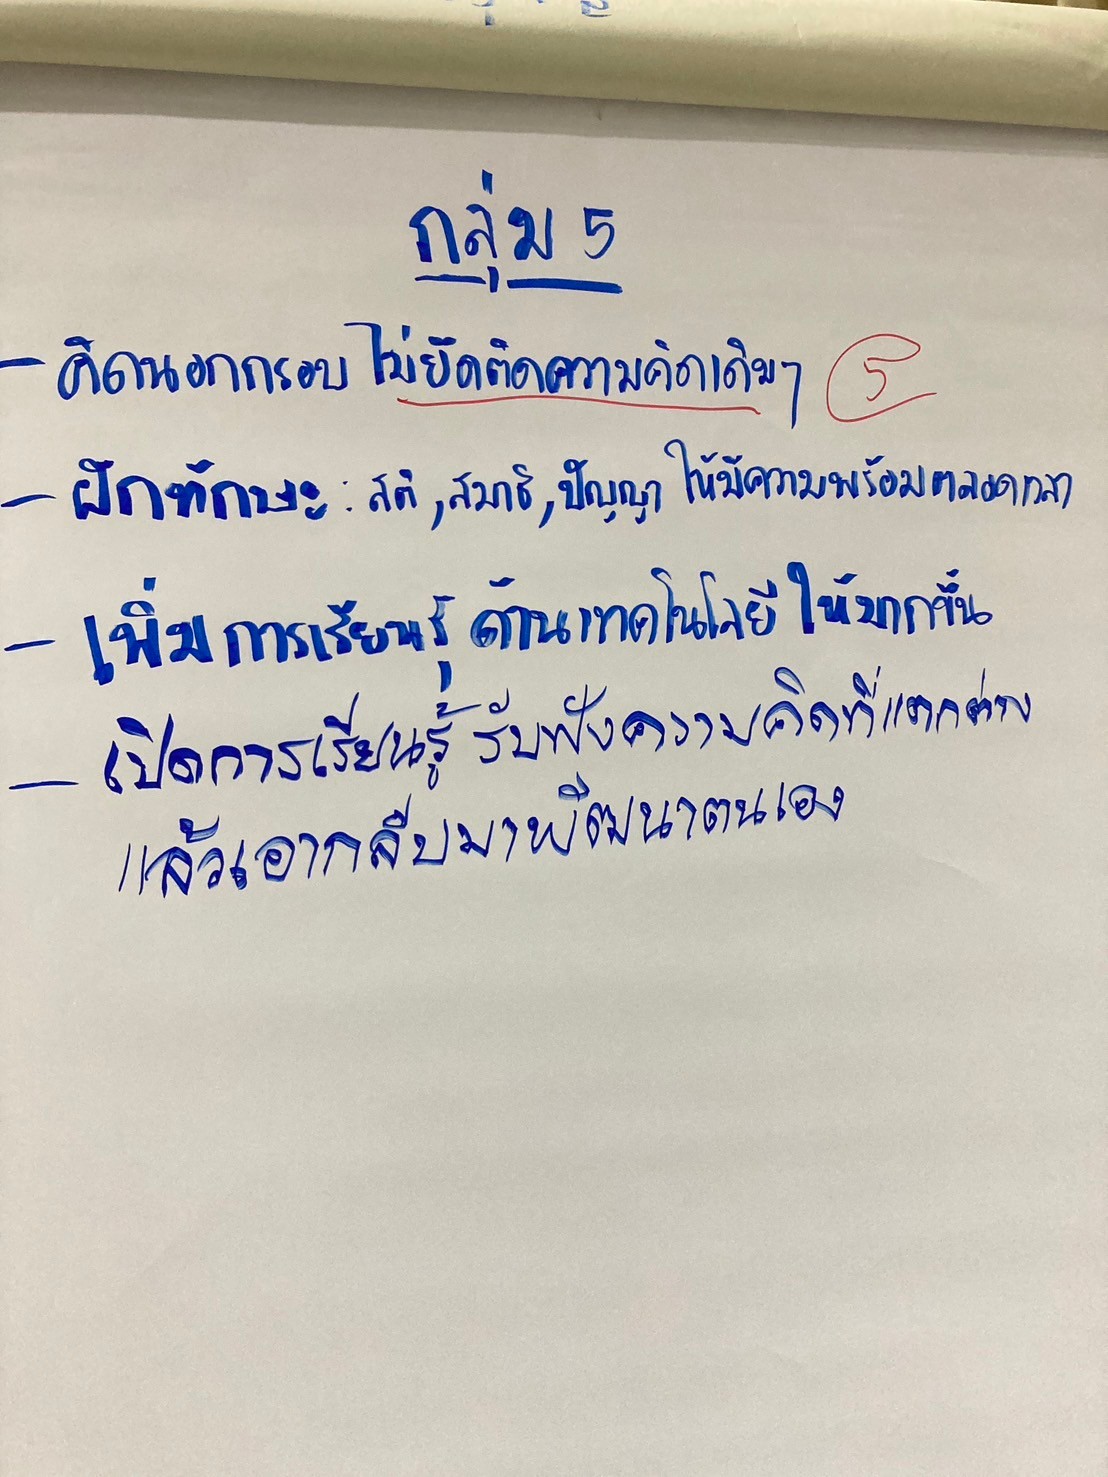 กลุ่ม 5
- คิดนอกกรอบ ไม่ยึดติดความคิดเดิมๆ 5
- ฝึกทักษะ : สติ, สมาธิ, ปัญญา ให้มีความพร้อมตลอดเวลา
- เพิ่มการเรียนรู้ ด้านเทคโนโลยี ให้มากขึ้น
- เปิดการเรียนรู้ รับฟังความคิดที่แตกต่าง
แล้วเอากลับมาพัฒนาตนเอง